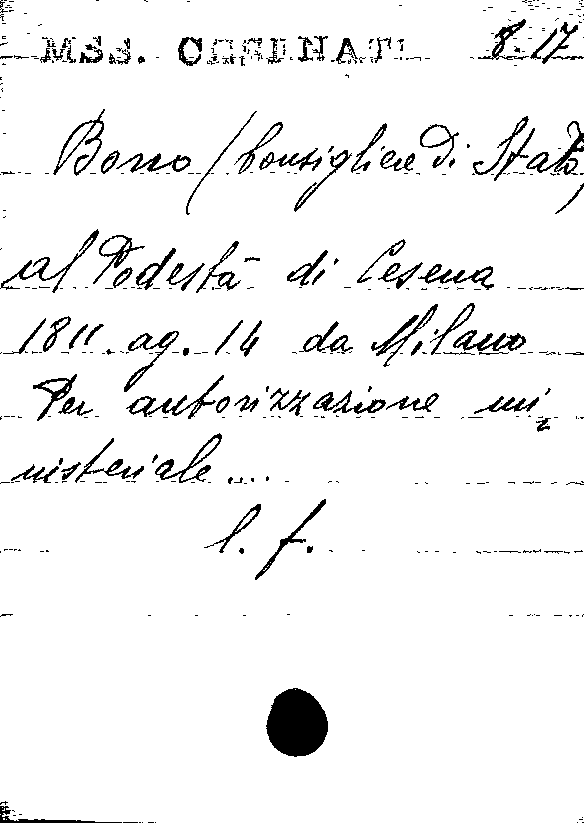 MSS. CESENATI 8. 17
Borro (Consigliere di Stato)
al Podestà di Cesena
1811. ag. 14 da Milano
Per autorizzazione mi=
nisteriale....
l. f.